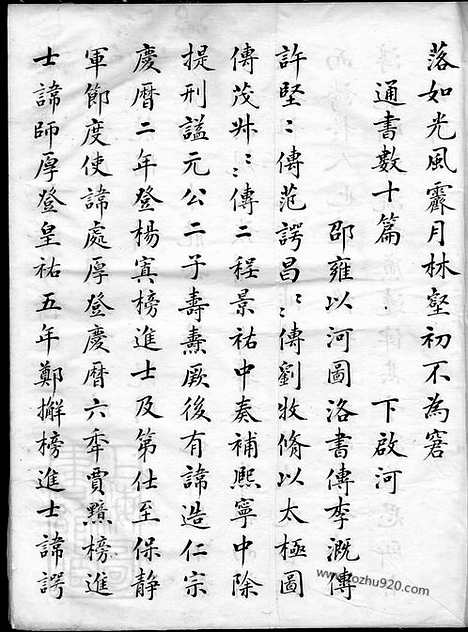 落如光風霽月林壑初不為窘
通書數十篇 下啟河
邵雍以河圖洛書傳李溉傳
許堅〻傳范諤昌〻〻〻傳劉牧脩以太極圖
傳茂叔〻〻傳二程景祐中奏補熙寧中除
提刑謚元公二子壽燾厥後有諱造仁宗
慶曆二年登楊寘榜進士及第仕至保静
軍節度使諱處厚登慶曆六年賈黯榜進
士諱師厚登皇祐五年鄭獬榜進士諱諤
www.zozhu920.com